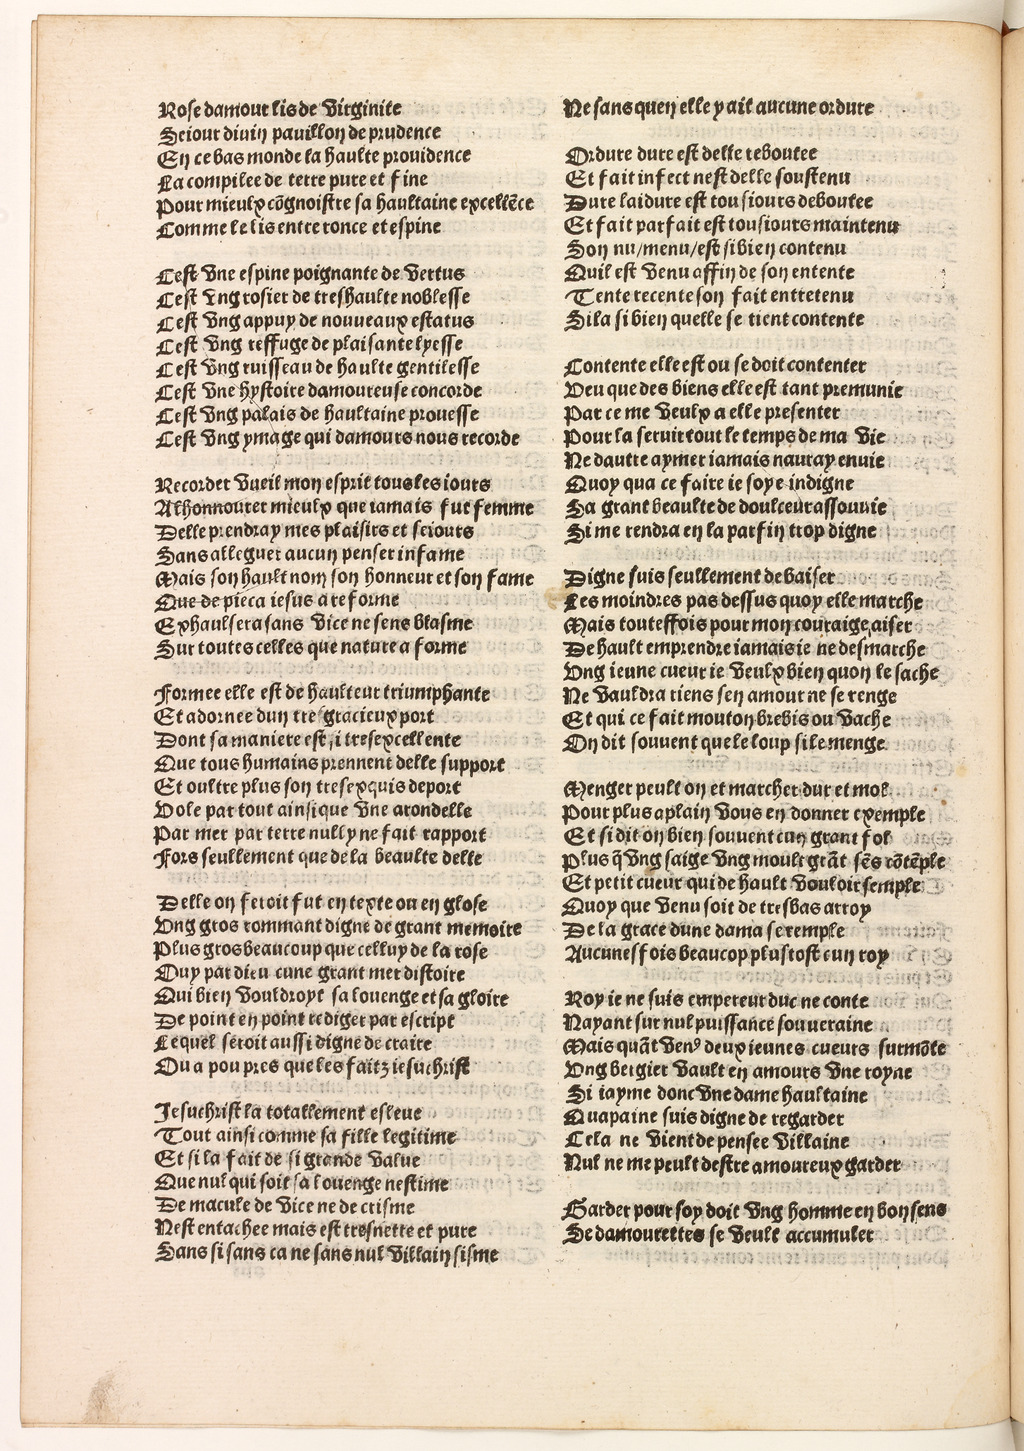 Rose damour lis de Virginite
Seiour diuin pauillon de prudence
En ce bas monde la haulte prouidence
La compilee de terre pure et fine
Pour mieulx cõgnoistre sa haultaine excellẽce
Comme le lis entre ronce et espine
Cest Vne espine poignante de Vertus
Cest Vng rosier de treshaulte noblesse
Cest Vng appuy de nouueaux estatus
Cest Vng reffuge de plaisante lyesse
Cest Vng ruisseau de haulte gentilesse
Cest Vne hystoire damoureuse concorde
Cest Vng palais de haultaine prouesse
Cest Vng ymage qui damours nous recorde
Recorder Vueil mon esprit tous les iours
A lhonnourer mieulx que iamais fut femme
Delle prendray mes plaisirs et seiours
Sans alleguer aucun penser infame
Mais son hault nom son honneur et son fame
Que de pieca iesus a reforme
Exhaulsera sans Vice ne sens blasme
Sur toutes celles que nature a forme
Formee elle est de haulteur triumphante
Et adornee dun tre gracieux port
Dont sa maniere est si tresexcellente
Que tous humains prennent delle support
Et oultre plus son tresexquis deport
Vole par tout ainsi que Vne arondelle
Par mer par terre nully ne fait rapport
Fors seullement que de la beaulte delle
Delle on feroit fut en texte ou en glose
Vng gros rommant digne de grant memoire
Plus gros beaucoup que celluy de la rose
Ouy par dieu cune grant mer distoire
Qui bien Vouldroyt sa louenge et sa gloire
De point en point rediger par escript
Lequel seroit aussi digne de craire
Ou a pou pres que les faitz iesuchrist
Jesuchrist la totallement esleue
Tout ainsi comme sa fille legitime
Et si la fait de si grande Value
Que nul qui soit sa louenge nestime
De macule de Vice ne de crisme
Nest entachee mais est tresnette et pure
Sans si sans ca ne sans nul Villain sisme
Ne sans quen elle y ait aucune ordure
Ordure dure est delle reboutee
Et fait infect nest delle soustenu
Dure laidure est tousiours deboutee
Et fait parfait est tousiours maintenu
Son nu/menu/est si bien contenu
Quil est Venu affin de son entente
Tente recente son fait entretenu
Si la si bien quelle se tient contente
Contente elle est ou se doit contenter
Veu que des biens elle est tant premunie
Par ce me Veulx a elle presenter
Pour la seruir tout le temps de ma Vie
Ne dautre aymer iamais nauray enuie
Quoy qua ce faire ie soye indigne
Sa grant beaulte de doulceur assouuie
Si me rendra en la parfin trop digne
Digne suis seullement de baiser
Les moindres pas dessus quoy elle marche
Mais touteffois pour mon couraige aiser
De hault emprendre iamais ie ne desmarche
Vng ieune cueur ie Veulx bien quon le sache
Ne Vauldra riens sen amour ne se renge
Et qui ce fait mouton brebis ou Vache
On dit souuent que le loup si le menge
Menger peult on et marcher dur et mol
Pour plus aplain Vous en donner exemple
Et si dit on bien souuent cun grant fol
Plus q̃ Vng saige Vng moult grãt sẽs cõtẽple
Et petit cueur qui de hault Vouloir semple
Quoy que Venu soit de tresbas arroy
De la grace dune dama se remple
Aucunesfois beaucop plustost cun roy
Roy ie ne suis empereur duc ne conte
Nayant sur nul puissance souueraine
Mais quãt Venꝰ deux ieunes cueurs surmõte
Vng bergier Vault en amours Vne royne
Si iayme donc Vne dame haultaine
Quapaine suis digne de regarder
Cela ne Vient de pensee Villaine
Nul ne me peult destre amoureux garder
Garder pour soy doit Vng homme en bon sens
Se damourettes se Veult accumuler